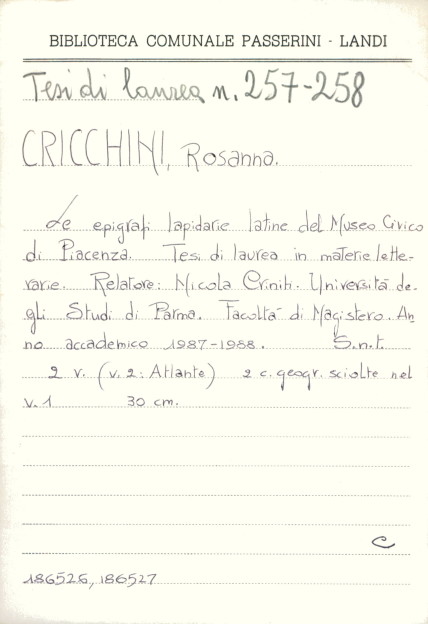 BIBLIOTECA COMUNALE PASSERINI - LANDI
Tesi di laurea n. 257-258
CRICCHINI, Rosanna.
Le epigrafi lapidarie latine del Museo Civico
di Piacenza. Tesi di laurea in materie lette-
rarie. Relatore: Nicola Criniti. Università de-
gli Studi di Parma. Facoltà di Magistero. An-
no accademico 1987-1988. S.n.t.
2 v. (v. 2: Atlante) 2 c. geogr. sciolte nel
v. 1 30 cm.
C
186526, 186527